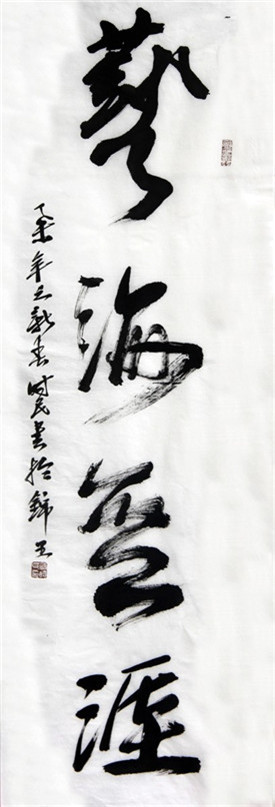 藝海無涯
丁未年之新春時民書於錦玉